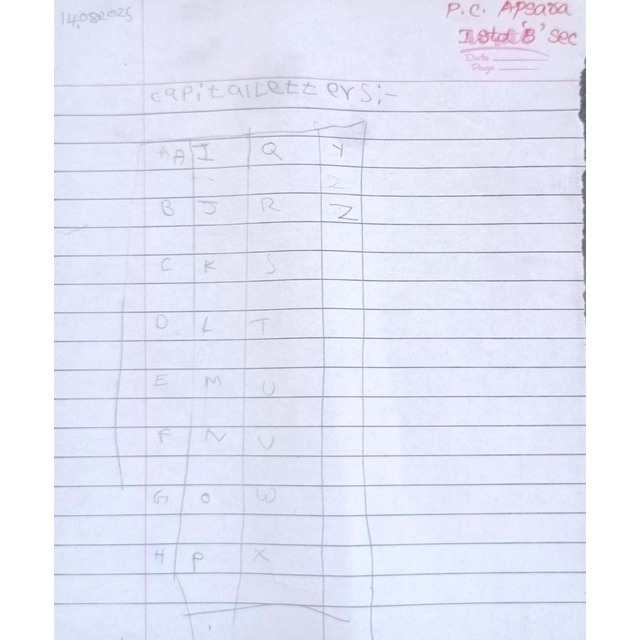 14.082025
P.C. Apsara
I std 'B' sec
Date
Page
capital Letters:-
A I Q Y
Z
B J R Z
C K S
D L T
E M U
F N V
G O W
H P X